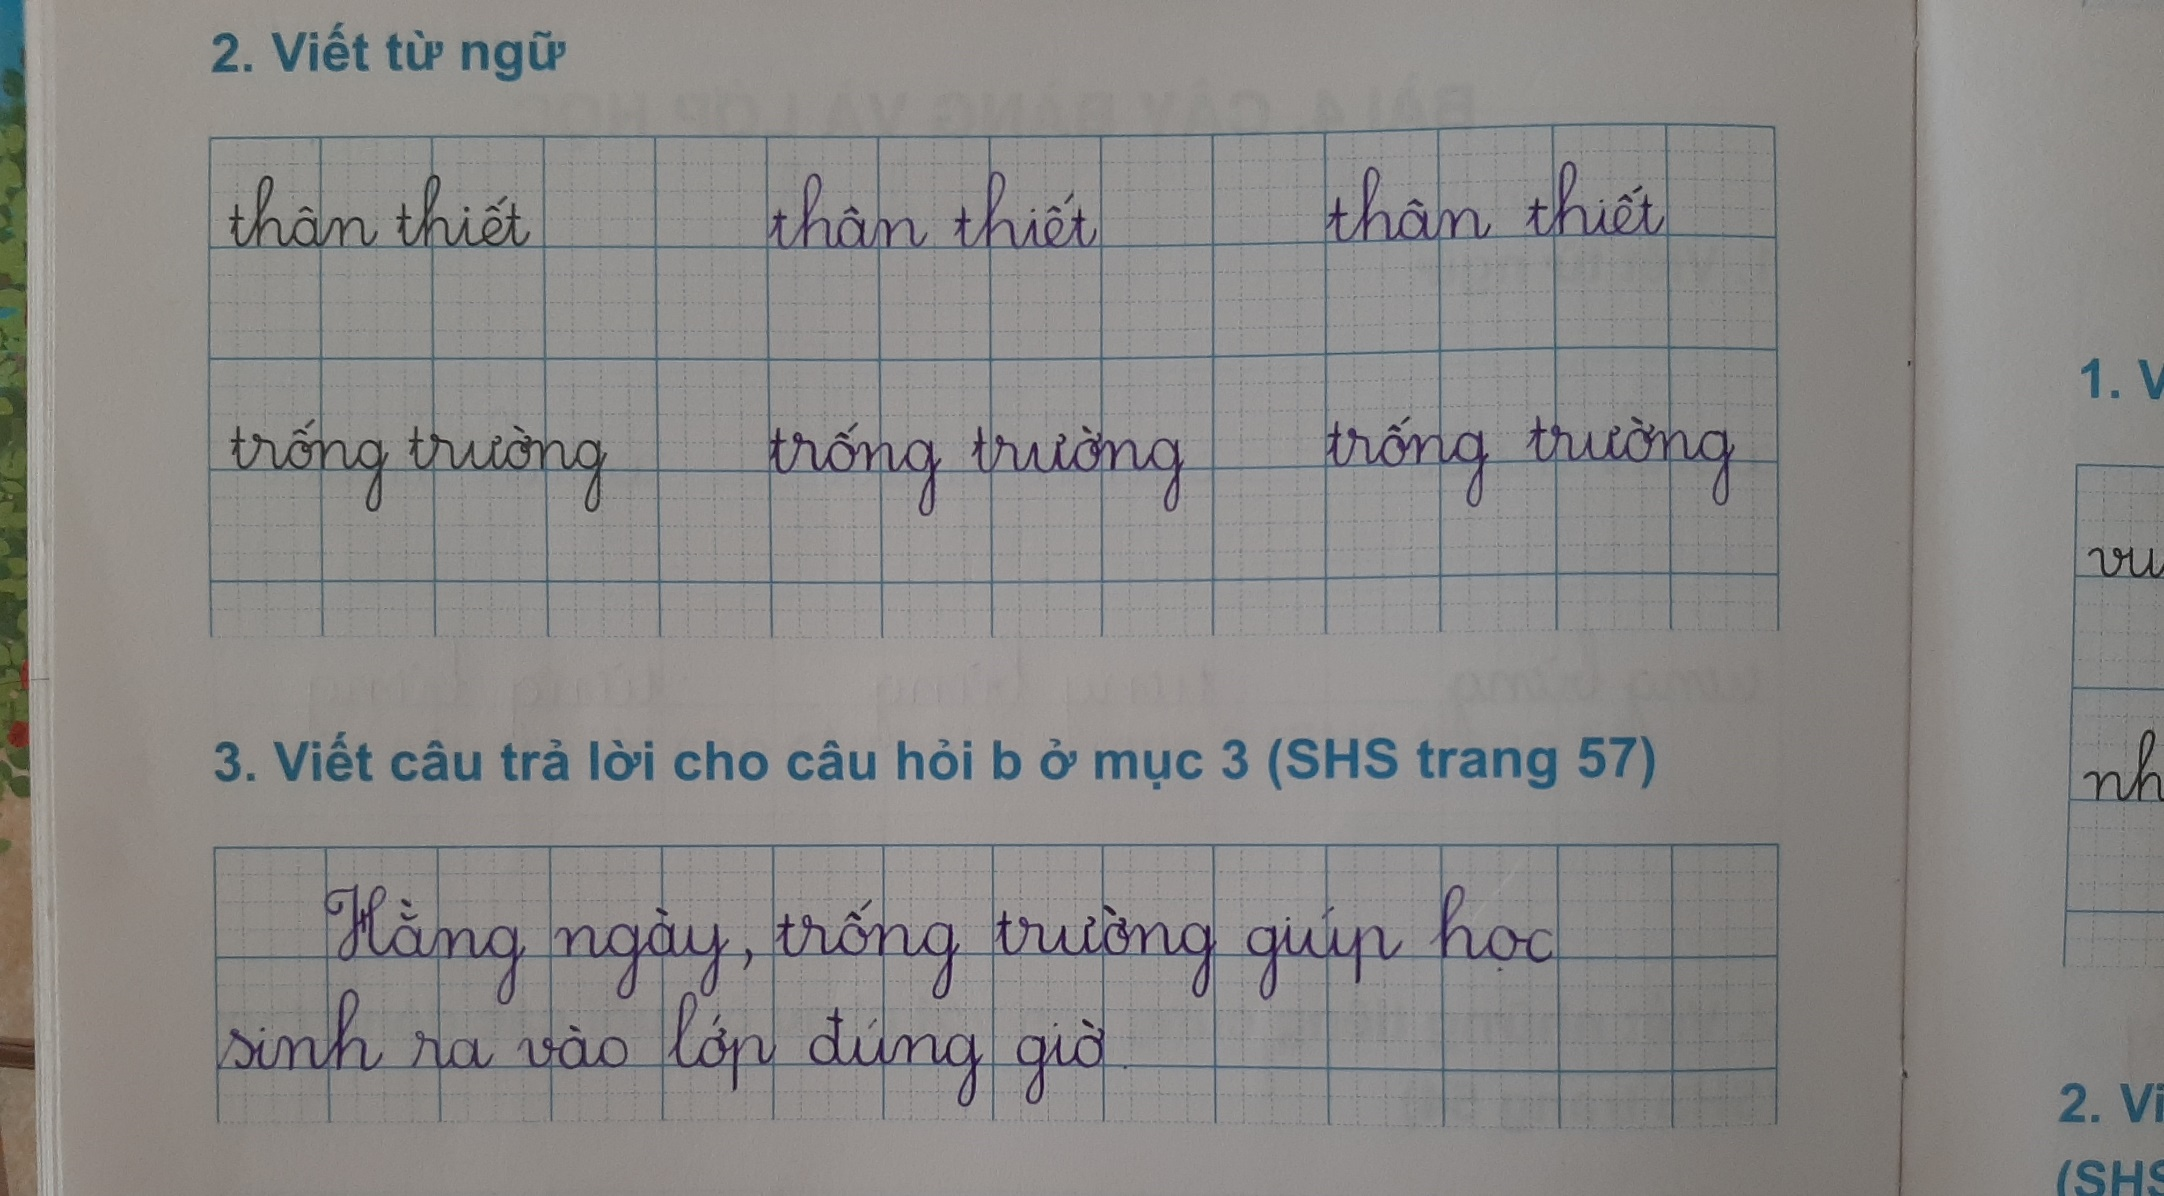 2. Viết từ ngữ
thân thiết thân thiết thân thiết
trống trường trống trường trống trường
3. Viết câu trả lời cho câu hỏi b ở mục 3 (SHS trang 57)
Hằng ngày, trống trường giúp học
sinh ra vào lớp đúng giờ.
1. V
vu
nh
2. Vi
(SHS